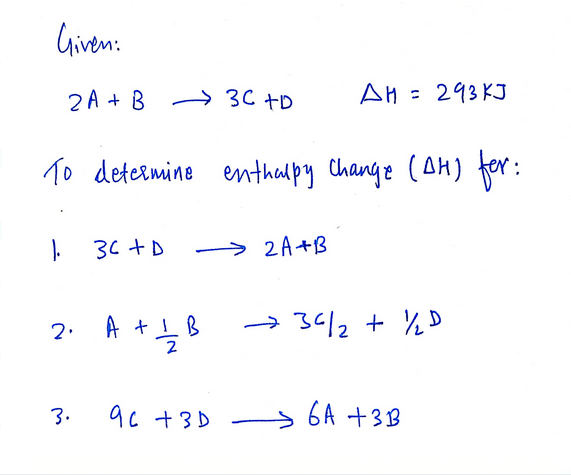 Given:
2A + B → 3C + D ΔH = 293KJ
To determine enthalpy change (ΔH) for:
1. 3C + D → 2A + B
2. A + 1/2 B → 3C/2 + 1/2 D
3. 9C + 3D → 6A + 3B